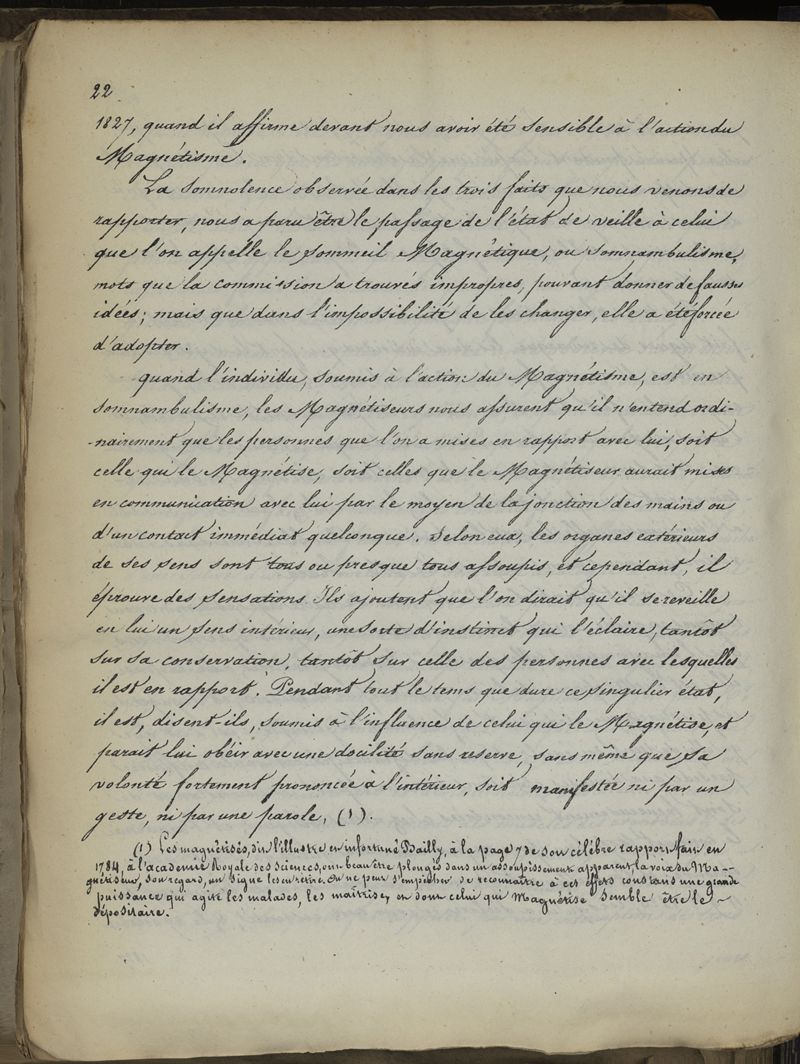 22
1827, quand il affirme devant nous avoir été sensible à l'action du
Magnétisme.
La Somnolence observée dans les trois faits que nous venons de
rapporter, nous a paru être le passage de l'état de veille à celui
que l'on appelle le sommeil Magnétique, ou somnambulisme,
mots que la Commission a trouvés impropres, pouvant donner de fausses
idées; mais que dans l'impossibilité de les changer, elle a été forcée
d'adopter.
Quand l'individu, soumis à l'action du Magnétisme, est en
somnambulisme, les Magnétiseurs nous assurent qu'il n'entend ordi-
-nairement que les personnes que l'on a mises en rapport avec lui, soit
celle qui le Magnétise, soit celles que le Magnétiseur aurait mises
en communication avec lui par le moyen de la jonction des mains ou
d'un contact immédiat quelconque. Selon eux, les organes extérieurs
de ses sens sont tous ou presque tous assoupis, et cependant, il
éprouve des sensations. Ils ajoutent que l'on dirait qu'il se reveille
en lui un sens intérieur, une sorte d'instinct qui l'éclaire, tantôt
sur sa conservation, tantôt sur celle des personnes avec lesquelles
il est en rapport. Pendant tout le tems que dure ce singulier état,
il est, disent-ils, soumis à l'influence de celui qui le Magnétise, et
parait lui obéir avec une docilité sans reserve, sans même que sa
volonté fortement prononcée à l'intérieur, soit manifestée ni par un
geste, ni par une parole, (1).
(1) Les magnétisés, dit l'illustre et infortuné Bailly, à la page 7 de son célébre rapport fait en
1784, à l'academie Royale des Sciences, ont beau être plongés dans un assoupissement apparent, la voix du Ma-
gnétiseur, son regard, un signe les en retire. On ne peut s'empêcher de reconnaître à ces effets constans une grande
puissance qui agite les malades, les maîtrise, et dont celui qui Magnétise semble être le
dépositaire.